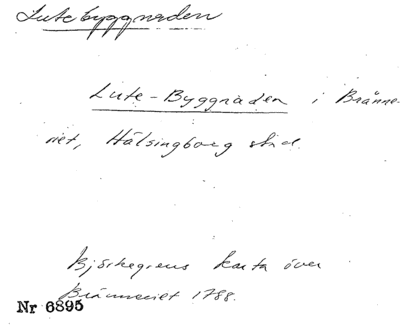 Lutebyggnaden
Lute-Byggnaden i Bränne-
riet, Hälsingborg stad.
Björkegrens karta över
Bränneriet 1788.
Nr 6895